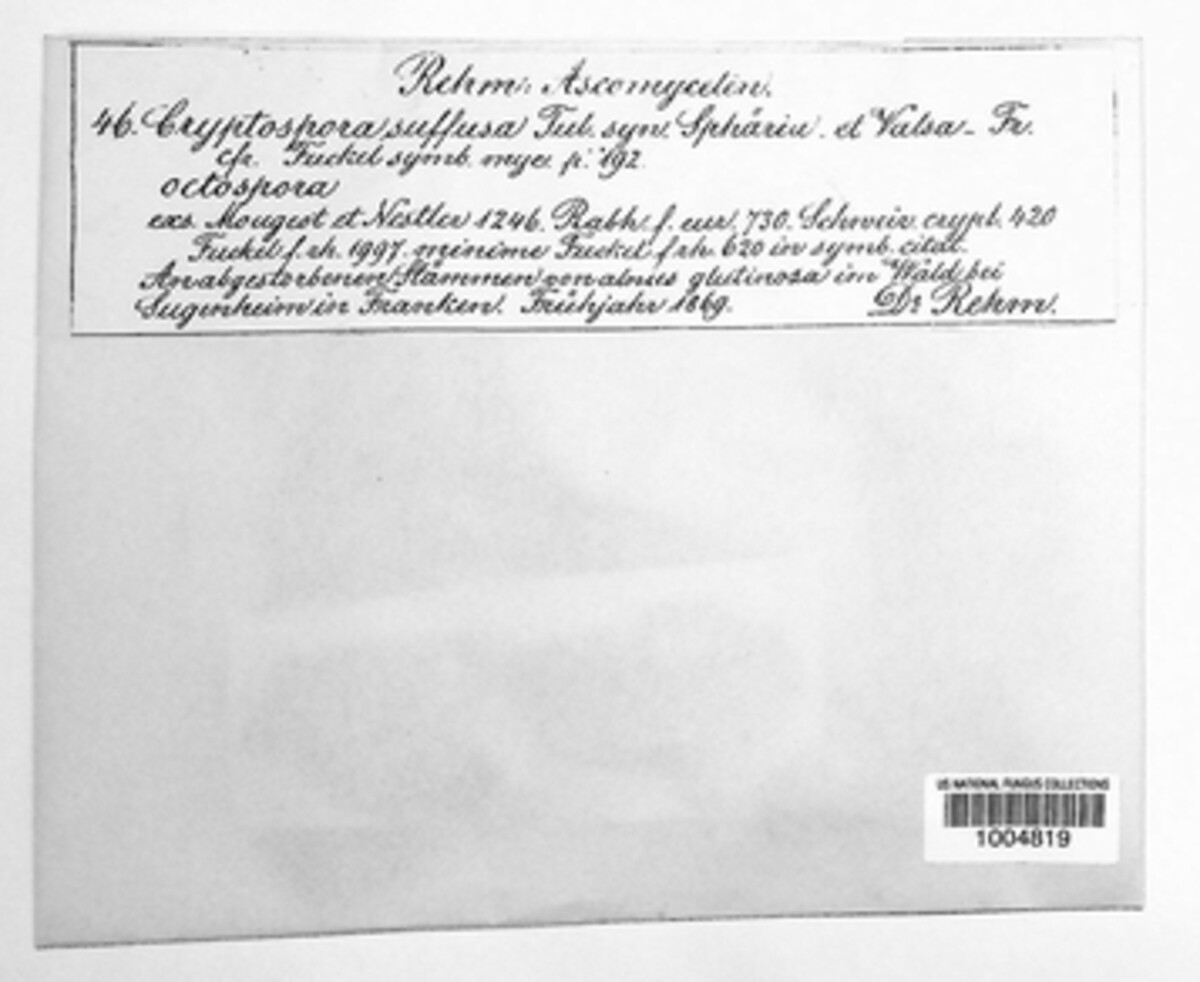 Rehm: Ascomyceten.
46. Cryptospora suffusa Tul. syn. Sphäria - et Valsa - Fr.
cfr. Fuckel symb. myc. p. 192.
octospora
exs. Mougeot et Nestler 1246. Rabh. f. eur. 730. Schweiz. crypt. 420
Fuckel f. rh. 1997. minime Fuckel f. rh. 620 in symb. citat.
An abgestorbenen Stämmen von alnus glutinosa im Wald bei
Sugenheim in Franken. Frühjahr 1869. Dr Rehm.
US NATIONAL FUNGUS COLLECTIONS
1004819